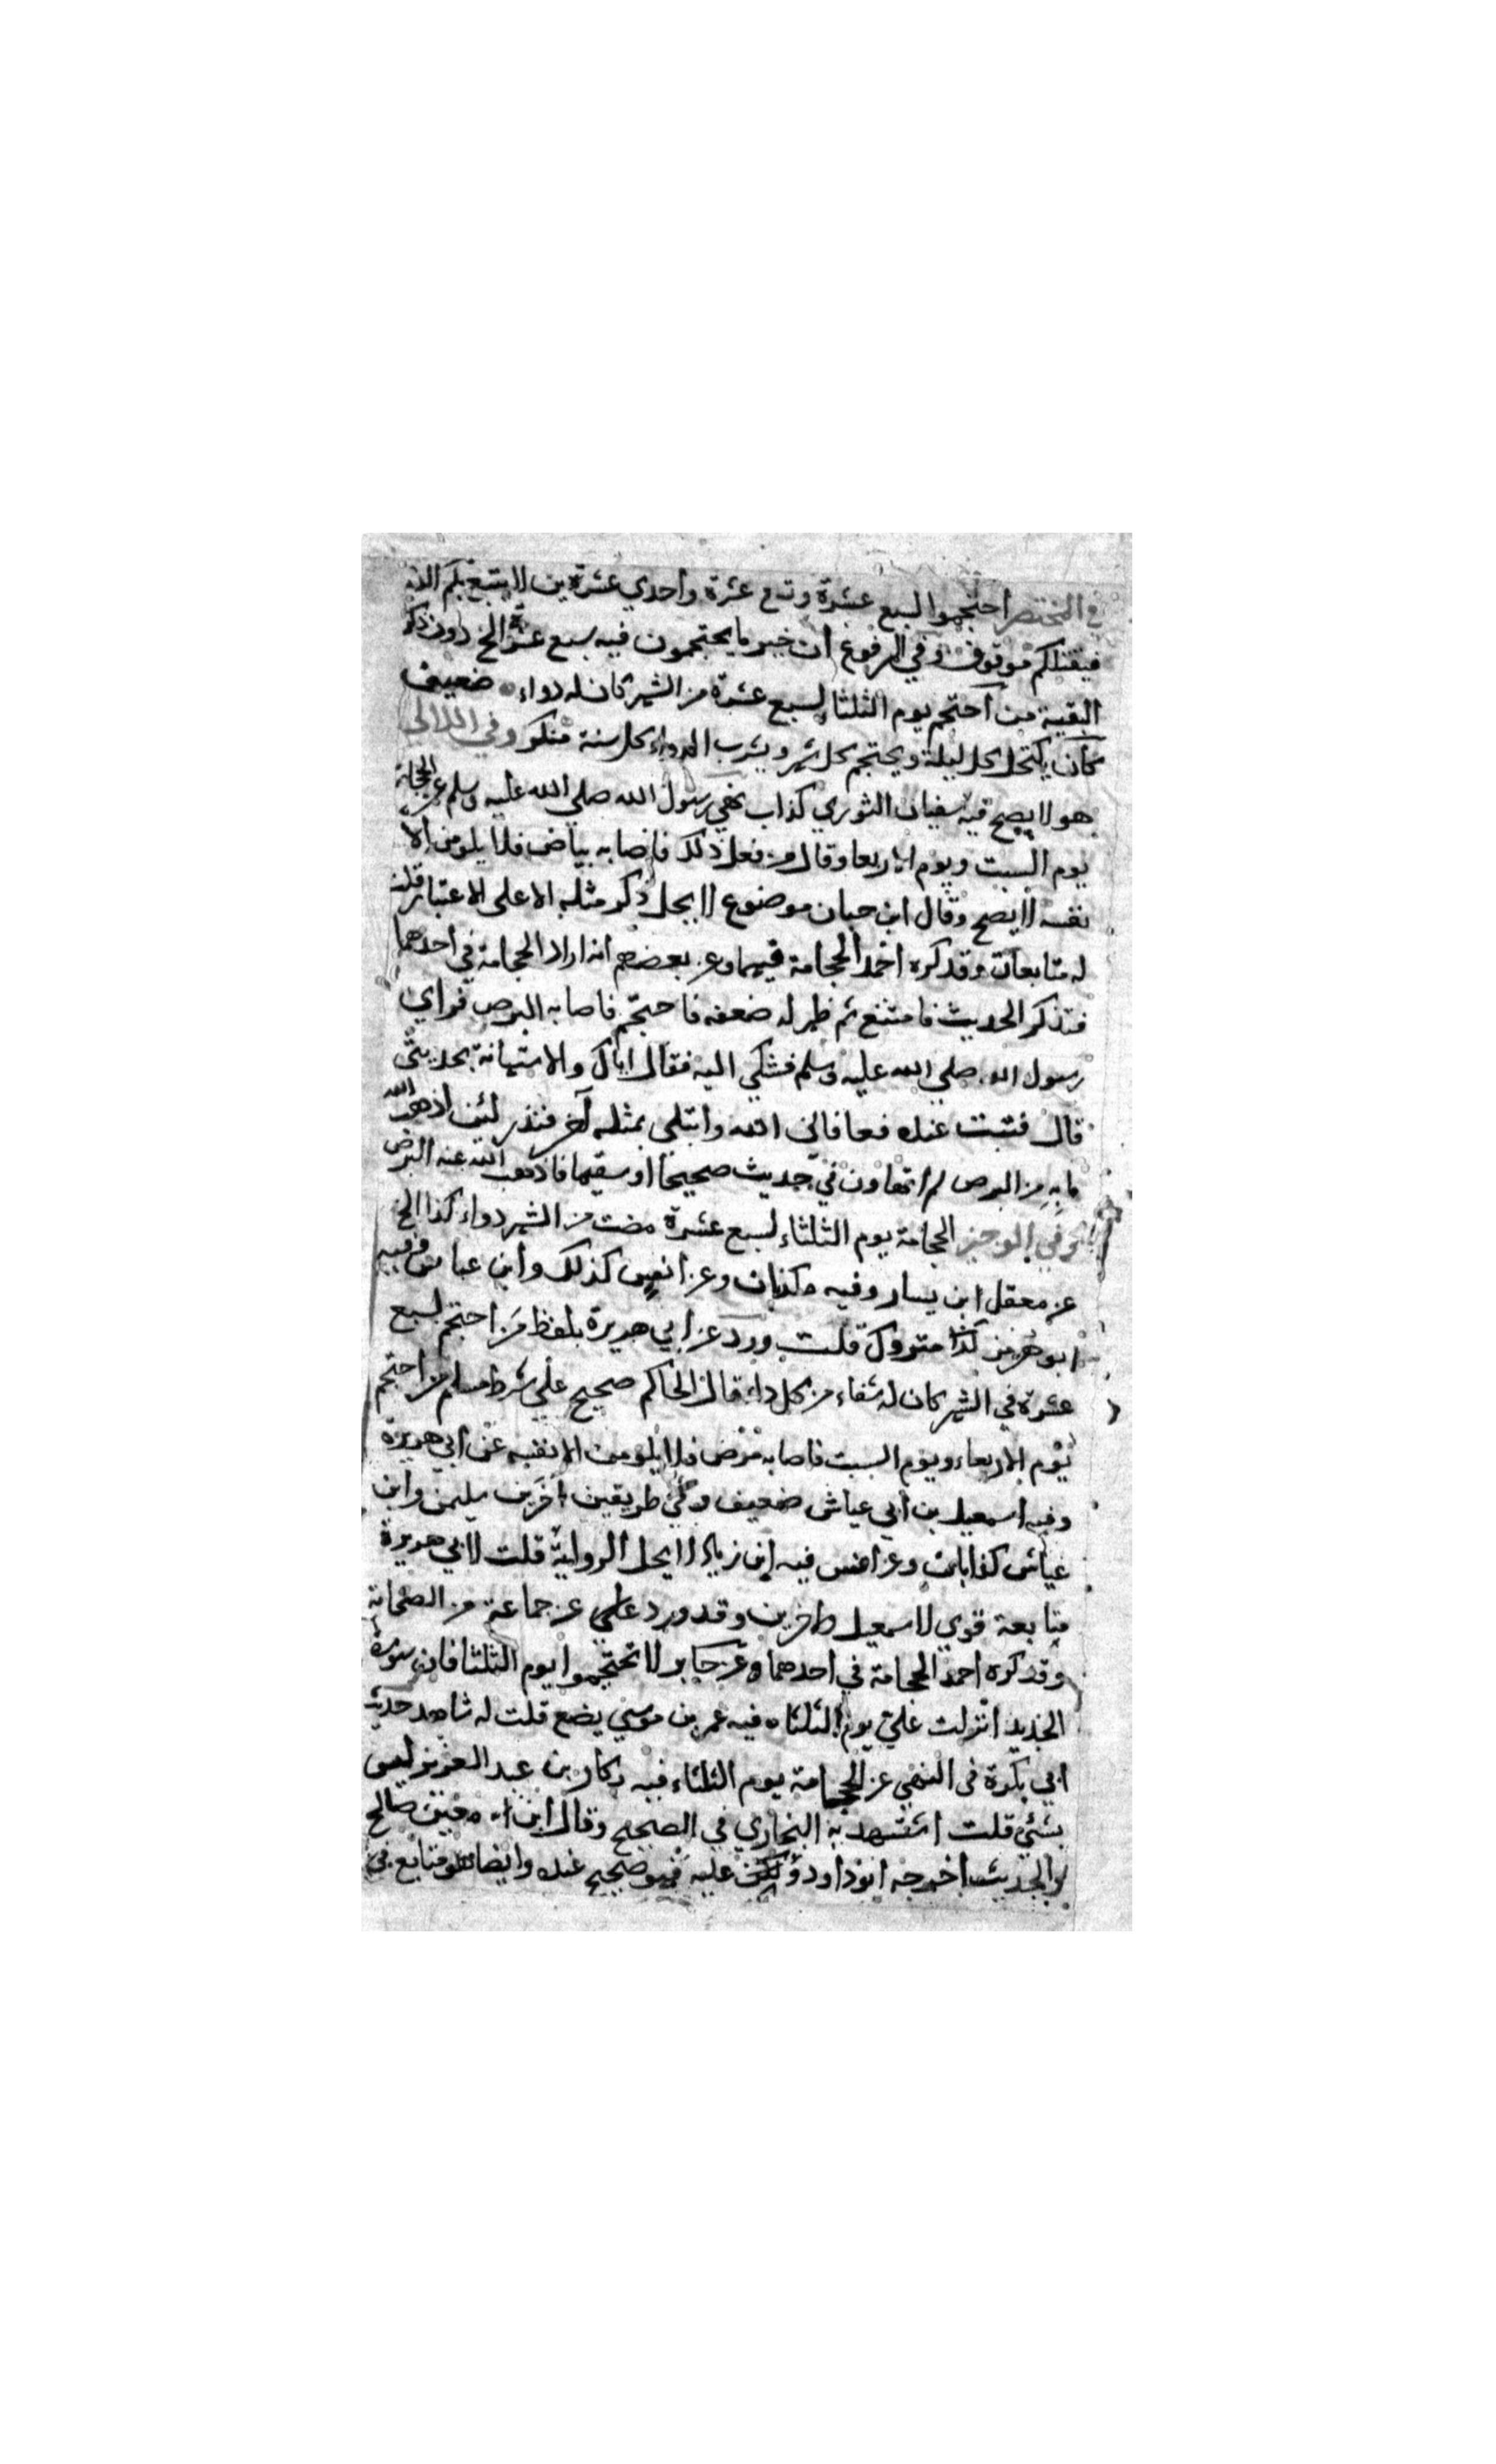 في المختصر احتجموا لسبع عشرة وتسع عشرة واحدي عشرين لا يتبيغ بكم الدم
فيقتلكم موقوف وفي الرفوع ان خير ما يحتجمون فيه سبع عشرة الخ دون ذكر
البقية من احتجم يوم الثلثا لسبع عشرة من الشهر كان له دواء ضعيف
كان يكتحل كل ليلة ويحتجم كل شهر ويشرب الدواء كل سنة منكر وفي اللالي
هو لا يصح فيه سفيان الثوري كذاب نهي رسول الله صلي الله عليه وسلم عن الحجامة
يوم السبت ويوم الاربعا وقال من فعل ذلك فاصابه بياض فلا يلومن الا
نفسه لا يصح وقال ابن حبان موضوع لا يحل ذكر مثله الا على الاعتبار قلت
له متابعات وقد كره احمد الحجامة فيهما وعن بعضهم انه اراد الحجامة في احدهما
فتذكر الحديث فامتنع ثم ظهر له ضعفه فاحتجم فاصابه البرص فراي
رسول الله صلي الله عليه وسلم فشكي اليه فقال اياك والاستهانة بحديثي
قال فتبت عنده فعافاني الله وابتلي بمثله آخر فنذر لئن اذهب الله
ما به من البرص لم اتهاون في حديث صحيحا او سقيما فاذهب الله عنه البرص
وفي الوجيز الحجامة يوم الثلثاء لسبع عشرة مضت من الشهر دواء كذا الخ
عن معقل ابن يسار وفيه كذبان وعن انس كذلك وابن عباس وفيه
ابو هرمز كذا متروك قلت ورد عن ابي هريرة بلفظ من احتجم لسبع
عشرة في الشهر كان له شفاء من كل داء قال الحاكم صحيح علي شرط مسلم من احتجم
يوم الاربعاء ويوم السبت فاصابه مرض فلا يلومن الا نفسه عن ابي هريرة
وفيه اسمعيل بن ابي عياش ضعيف وفي طريقين اخرين سليمن وابن
عياش كذابان وعن انس فيه ابن زياد لا يحل الرواية قلت لابي هريرة
متابعة قوي لاسمعيل واخرين وقد ورد علي عن جماعة من الصحابة
وقد كره احمد الحجامة في احدهما وعن جابر لا تحتجموا يوم الثلثا فان سورة
الحديد انزلت علي يوم الثلثاء فيه عمر بن موسي يضع قلت له شاهد حديث
ابي بكرة في النهي عن الحجامة يوم الثلثاء فيه بكار بن عبد العزيز ليس
بشئ قلت استشهد به البخاري في الصحيح وقال ابن معين صالح
والحديث اخرجه ابو داود وسكت عليه فهو صحيح عنده وايضا هو متابع في